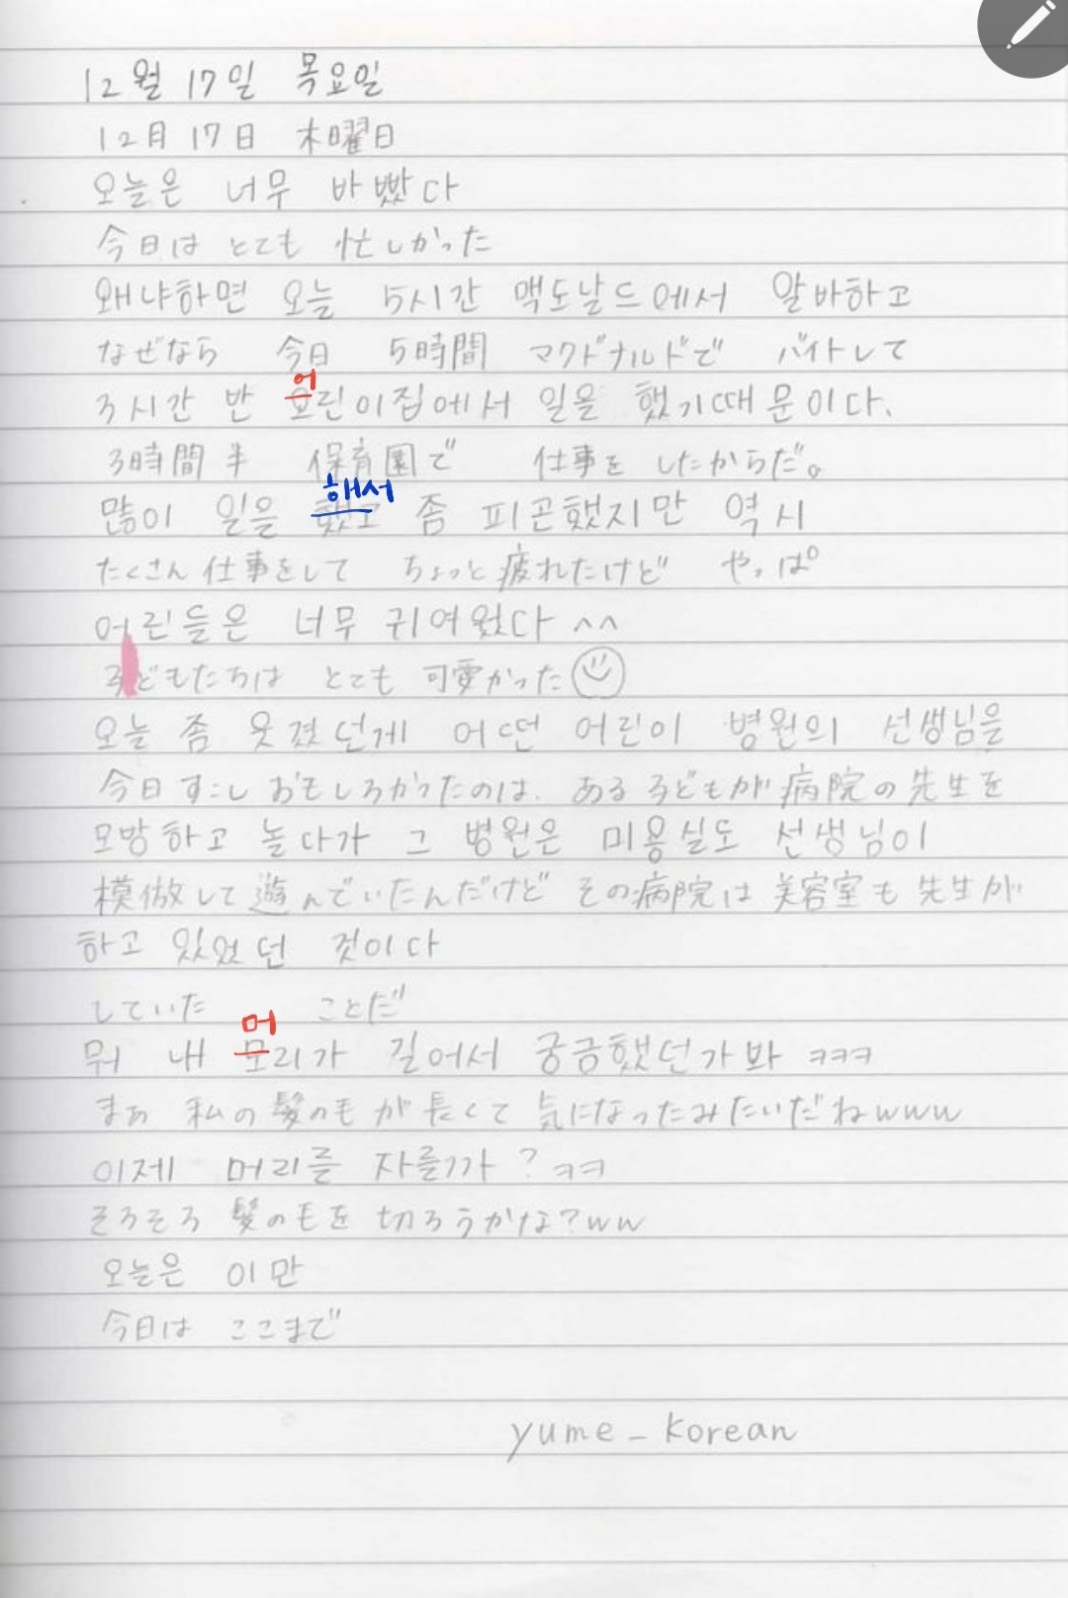 12월 17일 목요일
12月 17日 木曜日
오늘은 너무 바빴다
今日は とても 忙しかった
왜냐하면 오늘 5시간 맥도날드에서 알바하고
なぜなら 今日 5時間 マクドナルドで バイトして
어
3시간 반 오린이집에서 일을 했기때문이다.
3時間半 保育園で 仕事を したからだ。
해서
많이 일을 했고 좀 피곤했지만 역시
たくさん 仕事をして ちょっと疲れたけど やっぱ
어린들은 너무 귀여웠다 ^^
子どもたちは とても 可愛かった
오늘 좀 웃겼던게 어떤 어린이 병원의 선생님을
今日 すこし おもしろかったのは、ある子どもが 病院の先生を
모방하고 놀다가 그 병원은 미용실도 선생님이
模倣して 遊んでいたんだけど その病院は 美容室も 先生が
하고 있었던 것이다
していた ことだ
머
뭐 내 모리가 길어서 궁금했던가봐 ㅋㅋㅋ
まあ 私の髪の毛が長くて 気になったみたいだねwww
이제 머리를 자를까? ㅋㅋ
そろそろ 髪の毛を 切ろうかな?ww
오늘은 이만
今日は ここまで
yume_korean